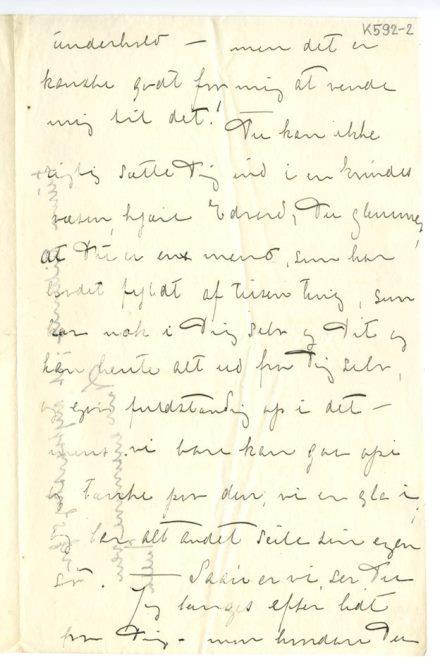 K592-2
underhold — men det er
kanske godt for mig at vende
mig til det! Du kan ikke
rigtig sætte Dig ind i en kvindes
væsen, kjære Edvard, Du glemmer,
at Du er en mand, som har
hodet fyldt af tusen ting, som
har nok i Dig selv og Dit og
kan hente alt ud fra Dig selv,
og fuldstændig op i det —
mens vi bare kan gaa op i
en tanke for den, vi er gla i,
og lar alt andet seile sin egen
sø. — Saan er vi, ser Du
Jeg længes efter lidt
fra Dig — men hvordan Du